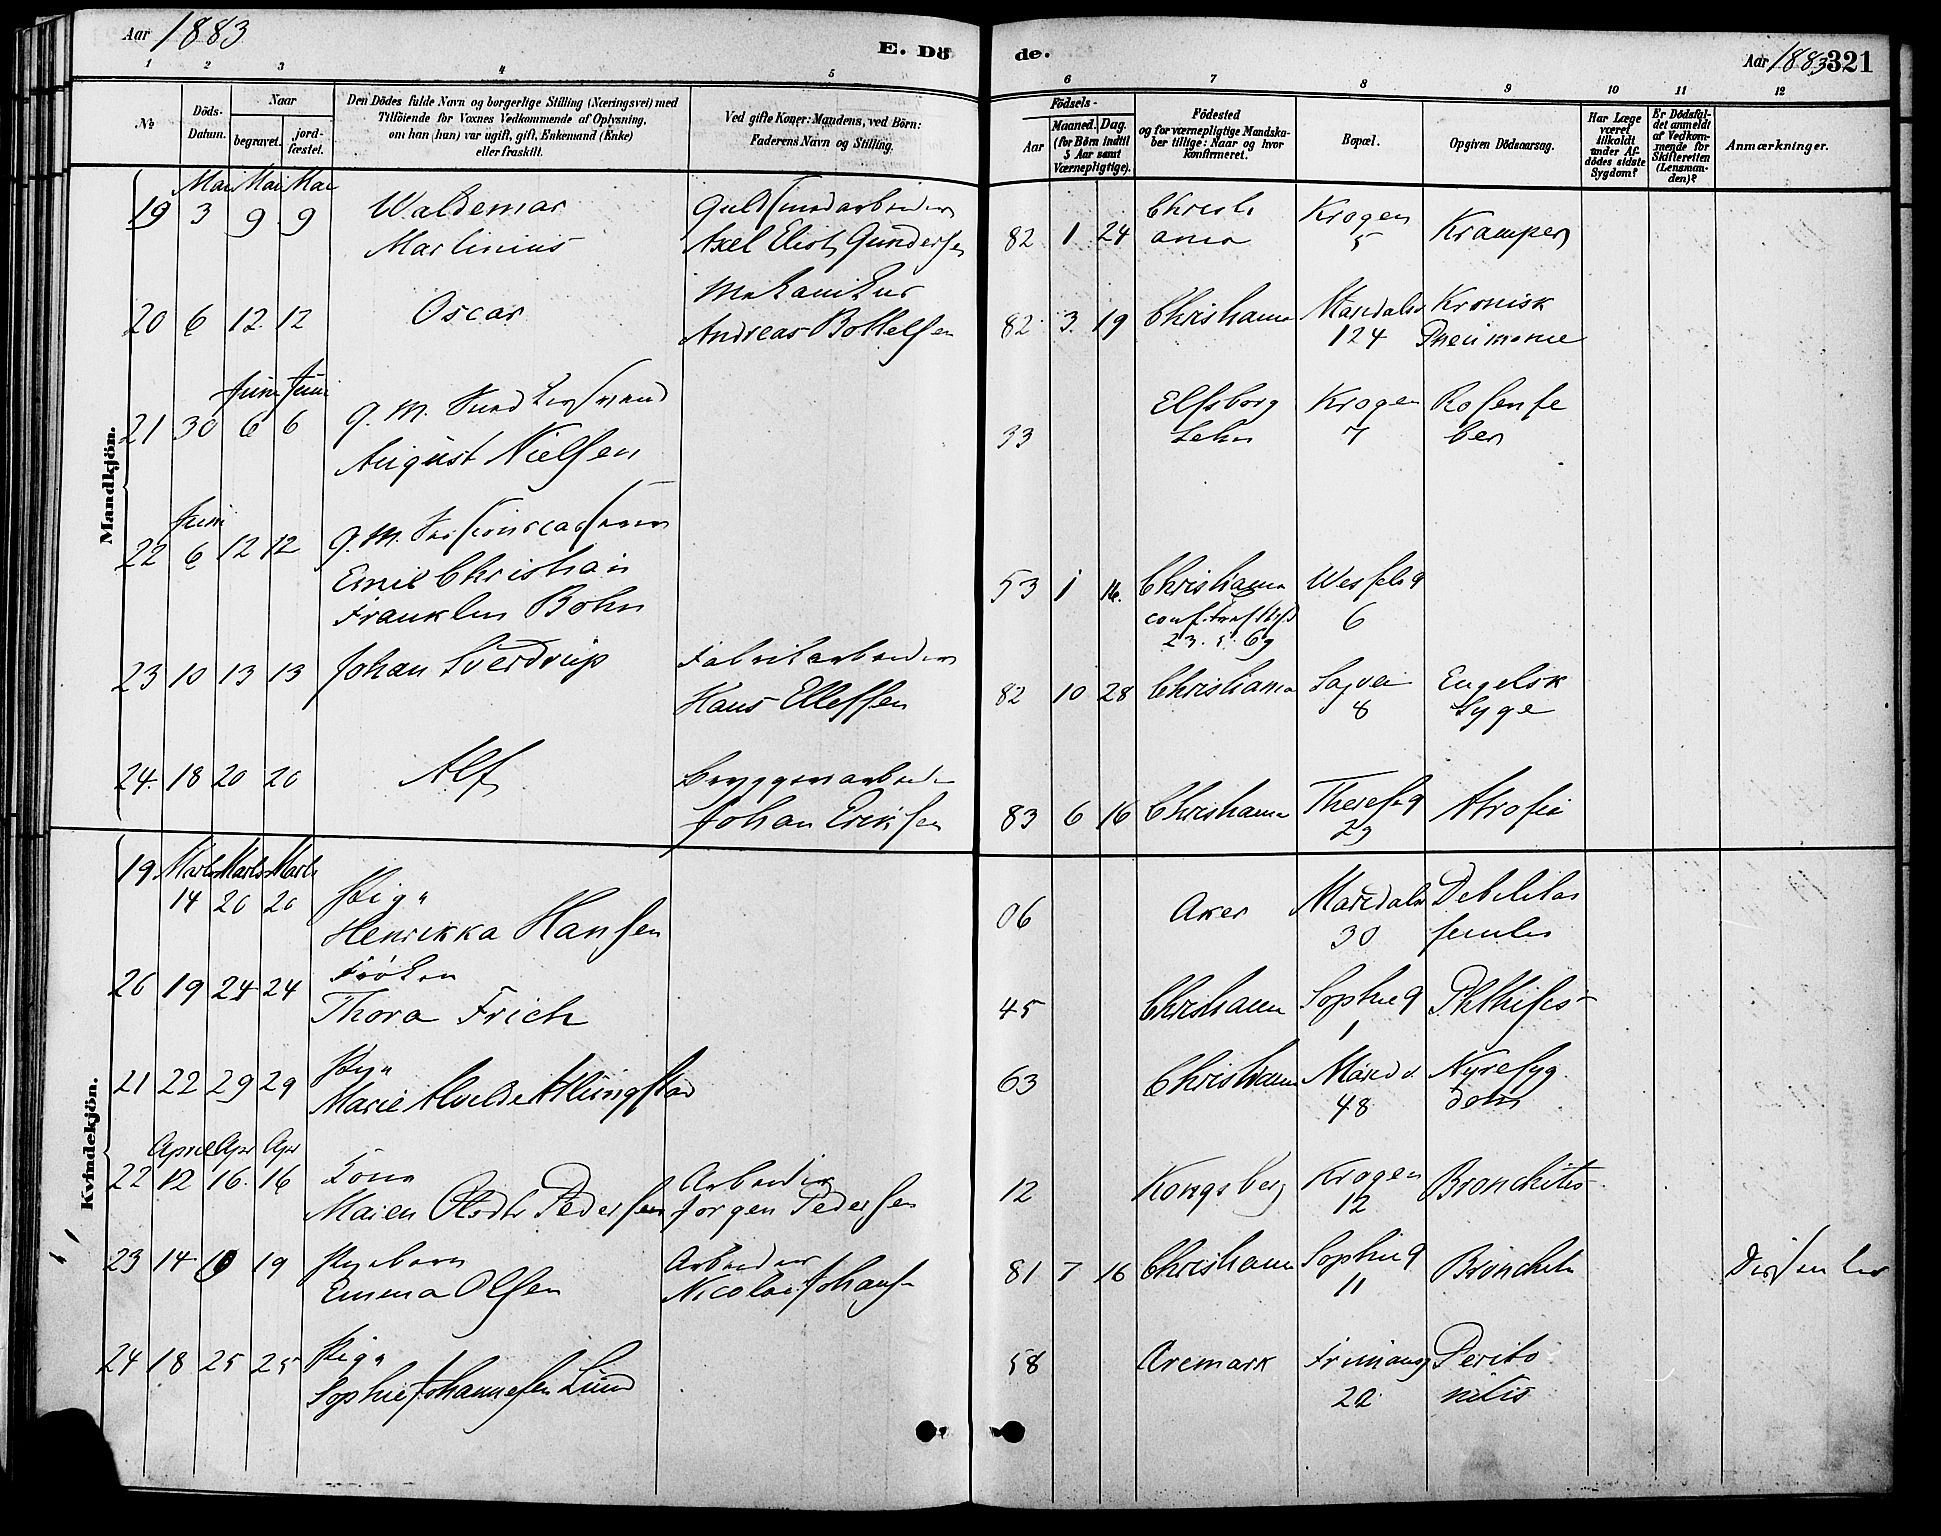 Aar 1883 E. Dö de. Aar 1883 321
1 2 3 4 5 6 7 8 9 10 11 12
№
Döds-Datum.
Naar
begravet. jord-fæstet.
Den Dödes fulde Navn og borgerlige Stilling (Næringsvei) med
Tilföiende for Voxnes Vedkommende af Oplysning,
om han (hun) var ugift, gift, Enkemand (Enke)
eller fraskilt.
Ved gifte Koner: Mandens, ved Börn:
Faderens Navn og Stilling.
Födsels-
Aar Maaned. Dag.
(for Börn indtil
5 Aar samt
Værnepligtige).
Födested
og for værnepligtige Mandska-
ber tillige: Naar og hvor
konfirmeret.
Bopæl.
Opgiven Dödsaarsag.
Har Læge
været
tilkaldt
under Af-
dödes sidste
Sygdom?
Er Dödsfal-
det anmeldt
af Vedkom-
mende for
Skifteretten
(Lensman-
den)?
Anmærkninger.
Mandkjön.
Mai Mai Mai
19 3 9 9 Waldemar Guldsmedarbeider Christi Krogen
Martinius Axel Gundersen 82 1 24 ania 5 Kramper
Mekanikus
20 6 12 12 Oscar Andreas Bottelsen 82 3 19 Christiania Maridalsv Kronisk
124 Pneumonie
Juni Juni
21 30 6 6 g. M. Elfsborg Krogen Rosenfe
August Nielsen 33 Lehn 7 ber
Juni
22 6 12 12 g. M.
Emil Christian 53 1 16 Christiania
Franklin Bohn conf. 6
23. 69
23 10 13 13 Johan Sverdrup Fabrikarbeider
Hans Ellefsen 82 10 28 Christiania Sagvei Engelsk
8 Syge
24. 18 20 20 Alf Bryggeriarbeider
Johan Eriksen 83 6 16 Christiania Theresesg Atrofia
23
Kvindekjön.
19 Marts Marts Marts
14 20 20 Pige
Henrikka Hansen 06 Aker Maridalsv Debilitas
30 senilis
20 19 24 24 Frøken
Thora Frich 45 Christiania Sophieg Phthisis
1
21 22 29 29 Pige
Marie 63 Christiania Maridv Nyresyg
48 dom
April Apr Apr
22 12 16 16 Kone Arbeider
Maren Olsdtr Pedersen Jørgen Pedersen 12 Kongsberg Krogen Bronchitis
12
23 14 19 Pigebarn Arbeider
Emma Olsen Nicolai Johans 81 7 16 Christiania Sophieg Bronchitis Dissenter
11
24 18 25 25 Pige
Sophie Johannesen Lund 58 Aremark Frimansg Perito
22 nitis